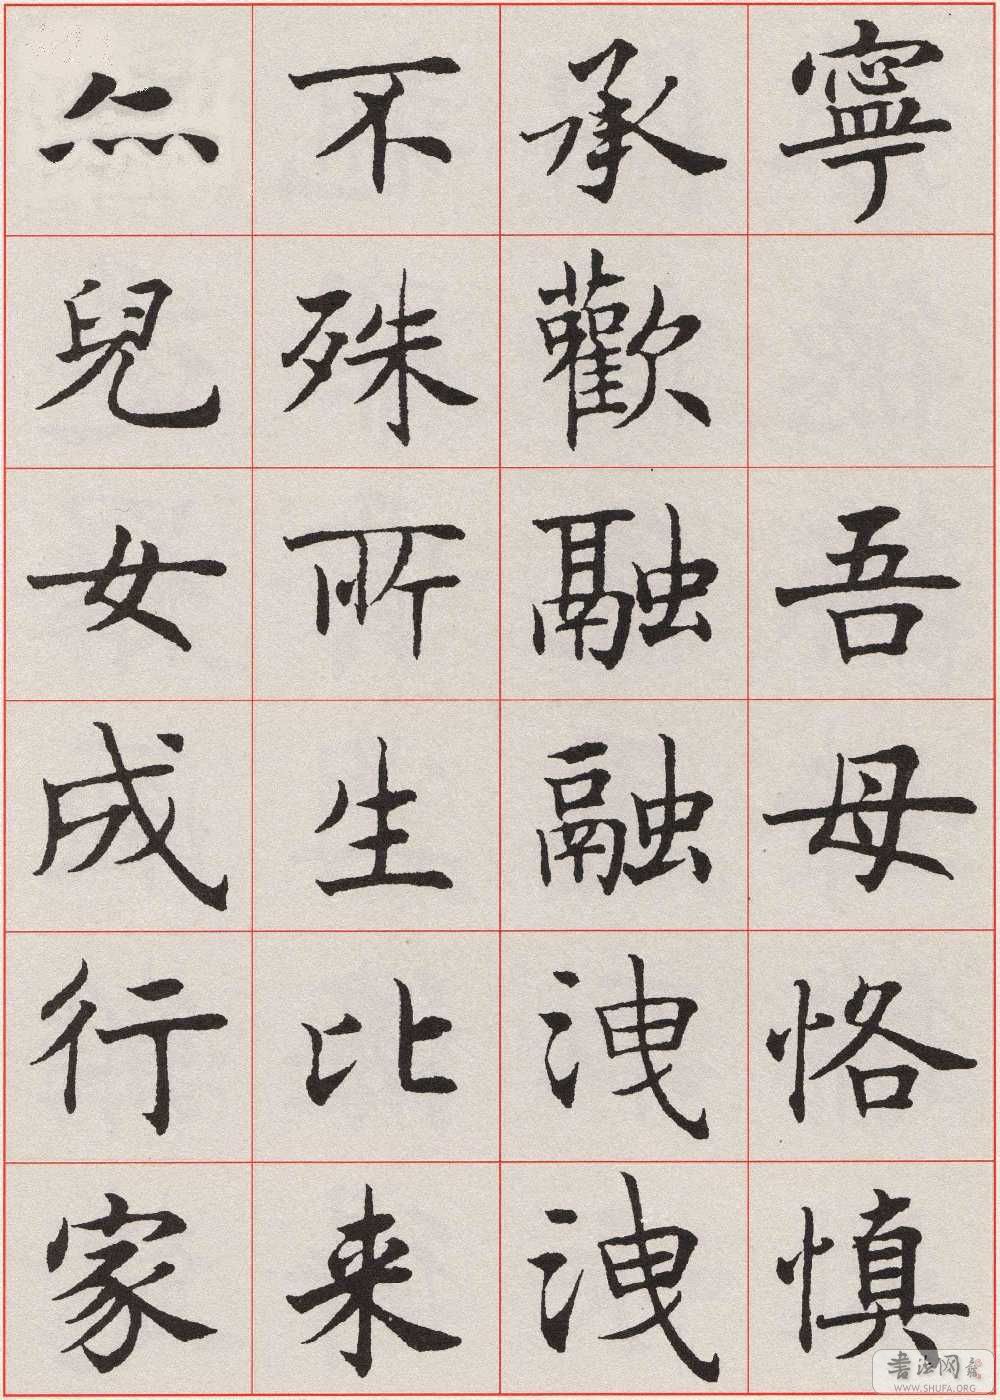 寧　吾母恪慎
承歡融融洩洩
不殊所生比来
𠂉灬兒女成行家
書法网
WWW.SHUFA.ORG